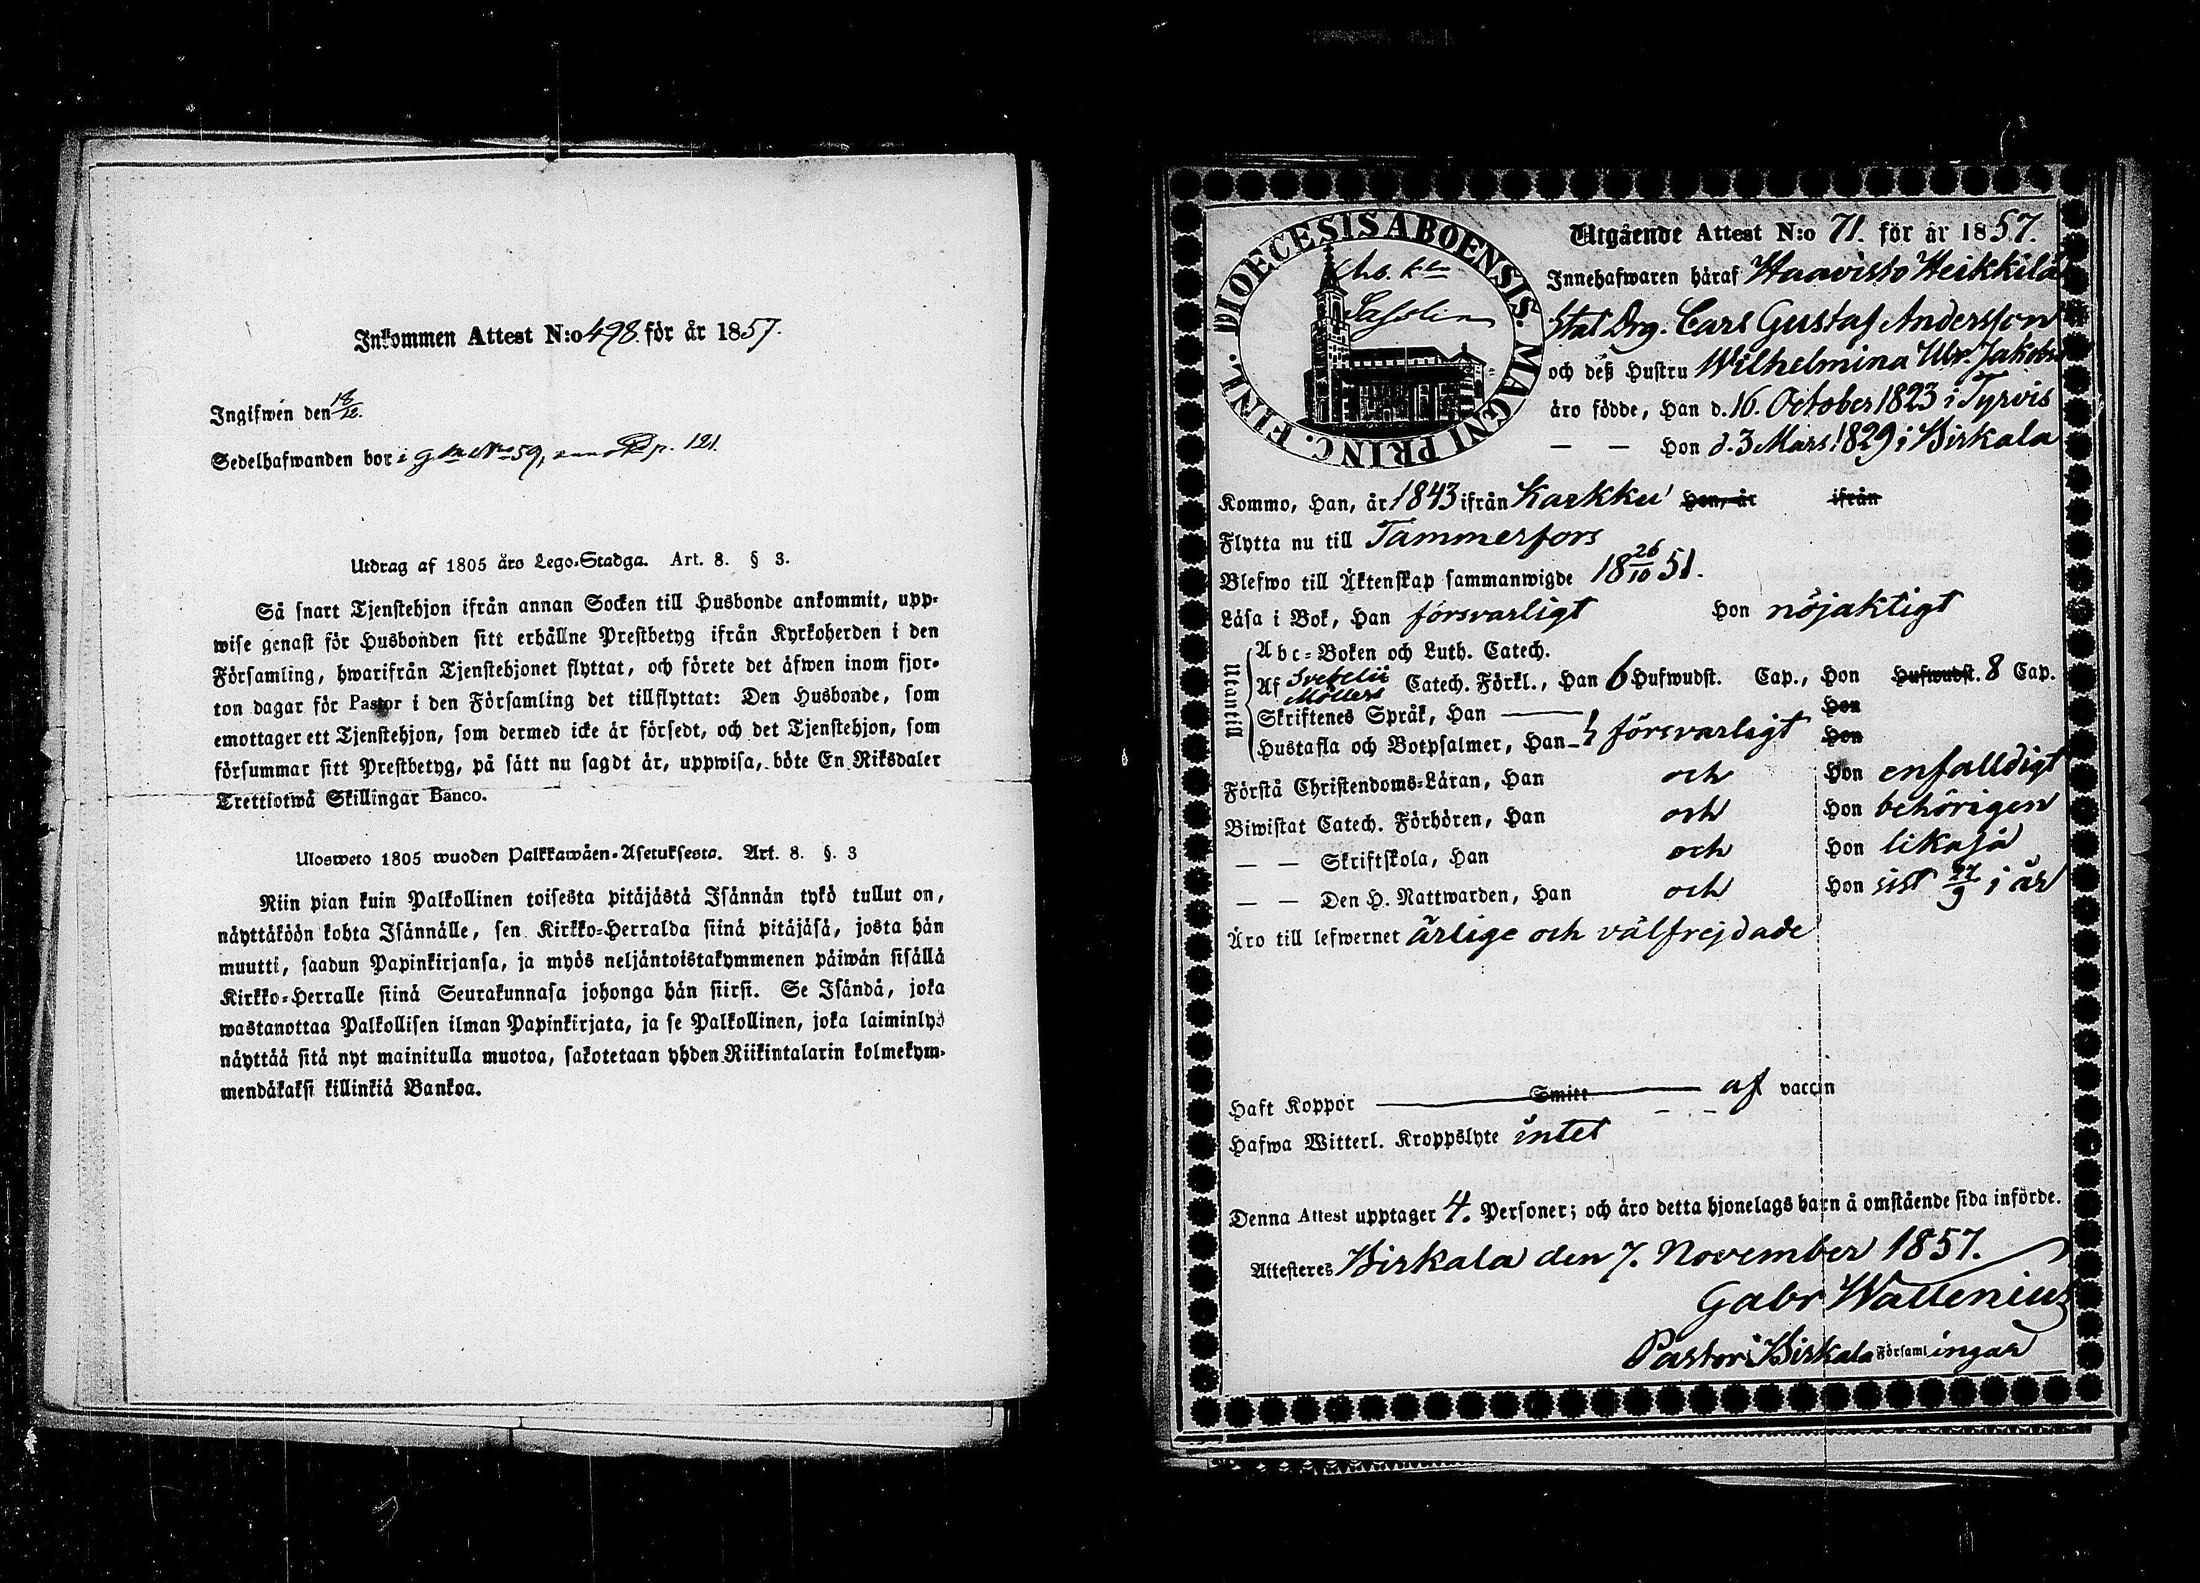 Inkommen Attest N:o 498. för år 1857.
Ingifwen den 18/12.
Sedelhafwanden bor i N:o 59, p. 121.
Utdrag af 1805 års Lego-Stadga. Art. 8. § 3.
Så snart Tjenstehjon ifrån annan Socken till Husbonde ankommit, upp-
wise genast för Husbonden sitt erhållne Prestbetyg ifrån Kyrkoherden i den
Församling, hwarifrån Tjenstehjonet flyttat, och förete det äfwen inom fjor-
ton dagar för Pastor i den Församling det tillflyttat: Den Husbonde, som
emottager ett Tjenstehjon, som dermed icke är försedt, och det Tjenstehjon, som
försummar sitt Prestbetyg, på sätt nu sagdt är, uppwisa, böte En Riksdaler
Trettiotwå Skillingar Banco.
Ulosweto 1805 wuoden Palkkawäen-Asetuksesta. Art. 8. §. 3
Niin pian kuin Palkollinen toisesta pitäjästä Isännän tykö tullut on,
näyttäköön kohta Isännälle, sen Kirkko-Herralda siinä pitäjäsä, josta hän
muutti, saadun Papinkirjansa, ja myös neljäntoistakymmenen päiwän sisällä
Kirkko-Herralle siinä Seurakunnasa johonga hän siirsi. Se Isändä, joka
wastanottaa Palkollisen ilman Papinkirjata, ja se Palkollinen, joka laiminlyö
näyttää sitä nyt mainitulla muotoa, sakotetaan yhden Riikintalarin kolmekym-
mendäkaksi killinkiä Bankoa.
DIOECESIS ABOENSIS. MAGNI PRINC. FINL.
Utgående Attest N:o 71. för år 1857.
Innehafwaren häraf Haavisto Heikkilä
Stat Drg. Carl Gustaf Andersson
och deß Hustru Wilhelmina Ulr. Jakobs
äro födde, Han d. 16. October 1823 i Tyrvis
— — Hon d. 3 Mars 1829 i Birkala
Kommo, Han, år 1843 ifrån Karkku Hon, år ifrån
Flytta nu till Tammerfors
Blefwo till Äktenskap sammanwigde 18 26/10 51.
Läsa i Bok, Han försvarligt Hon nöjaktigt
Utantill
Abc-Boken och Luth. Catech.
Af Svebelii Möllers Catech. Förkl., Han 6 Hufwudst. Cap., Hon Hufwudst. 8 Cap.
Skriftenes Språk, Han — Hon
Hustafla och Botpsalmer, Han — försvarligt Hon
Förstå Christendoms-Läran, Han och Hon enfalldigt
Biwistat Catech. Förhören, Han och Hon behörigen
— — Skriftskola, Han och Hon likaså
— — Den H. Nattwarden, Han och Hon sist 27/9 i år
Äro till lefwernet ärlige och välfrejdade
Haft Koppor Smitt af vaccin
Hafwa Witterl. Kroppslyte intet
Denna Attest upptager 4. Personer; och äro detta hjonelags barn å omstående sida införde.
Attesteres Birkala den 7. November 1857.
Gabr Wallenius
Pastor i Birkala Församl ingar